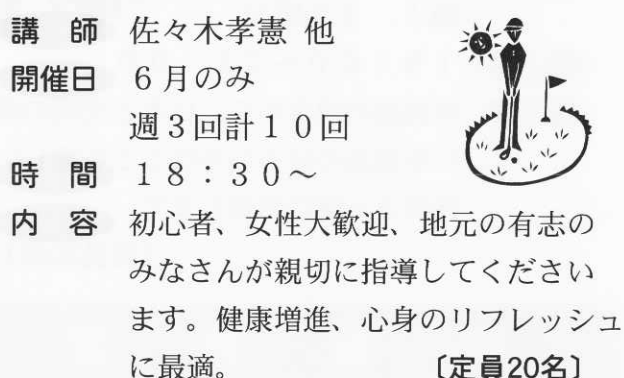 講　師　佐々木孝憲 他
開催日　６月のみ
週３回計１０回
時　間　１８：３０～
内　容　初心者、女性大歓迎、地元の有志の
みなさんが親切に指導してください
ます。健康増進、心身のリフレッシュ
に最適。　〔定員20名〕